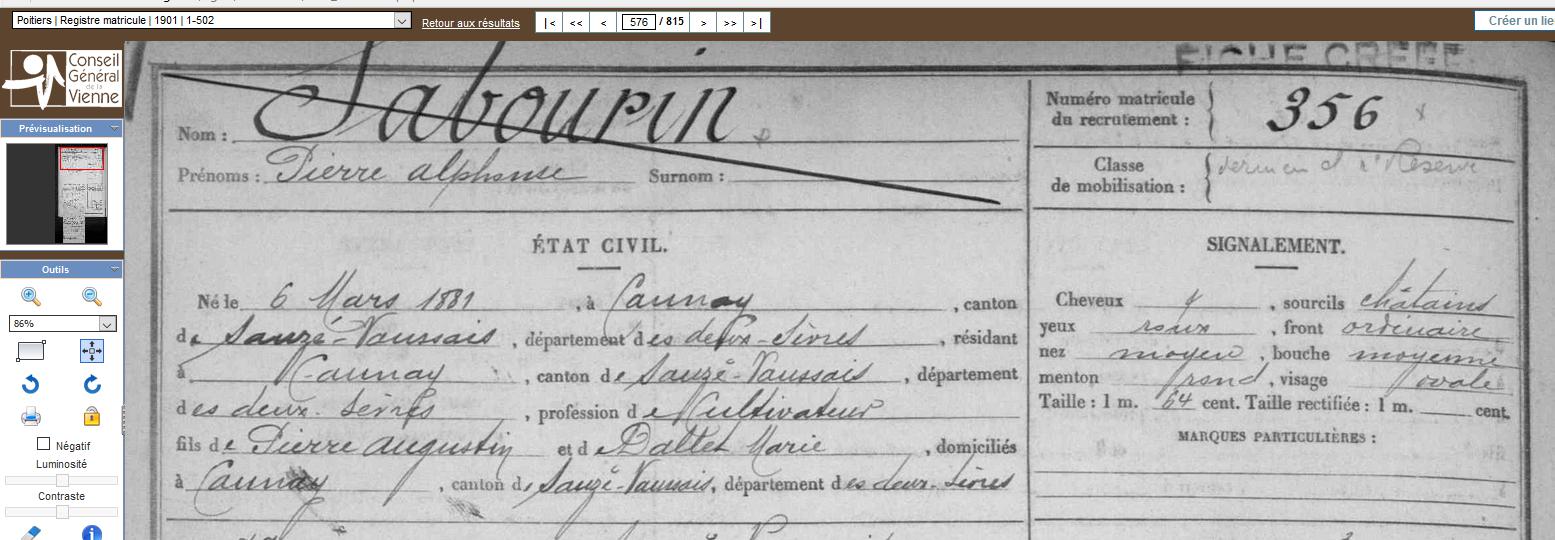 Poitiers | Registre matricule | 1901 | 1-502
Retour aux résultats
|< << < 576 / 815 > >> >|
Créer un lie
Conseil
Général
de la
Vienne
Prévisualisation
Outils
86%
Négatif
Luminosité
Contraste
FICHE CREEE
Nom : Sabourin
Prénoms : Pierre alphonse Surnom :
Numéro matricule du recrutement : 356
Classe de mobilisation : Reserve
ÉTAT CIVIL.
Né le 6 Mars 1881, à Caunay, canton
de Sauzé-Vaussais, département des deux-Sèvres, résidant
à Caunay, canton de Sauzé-Vaussais, département
des deux-Sèvres, profession de Cultivateur
fils de Pierre augustin et de Dallet Marie, domiciliés
à Caunay, canton de Sauzé-Vaussais, département des deux-Sèvres
SIGNALEMENT.
Cheveux, sourcils châtains
yeux roux, front ordinaire
nez moyen, bouche moyenne
menton rond, visage ovale
Taille : 1 m. 64 cent. Taille rectifiée : 1 m. cent.
MARQUES PARTICULIÈRES :